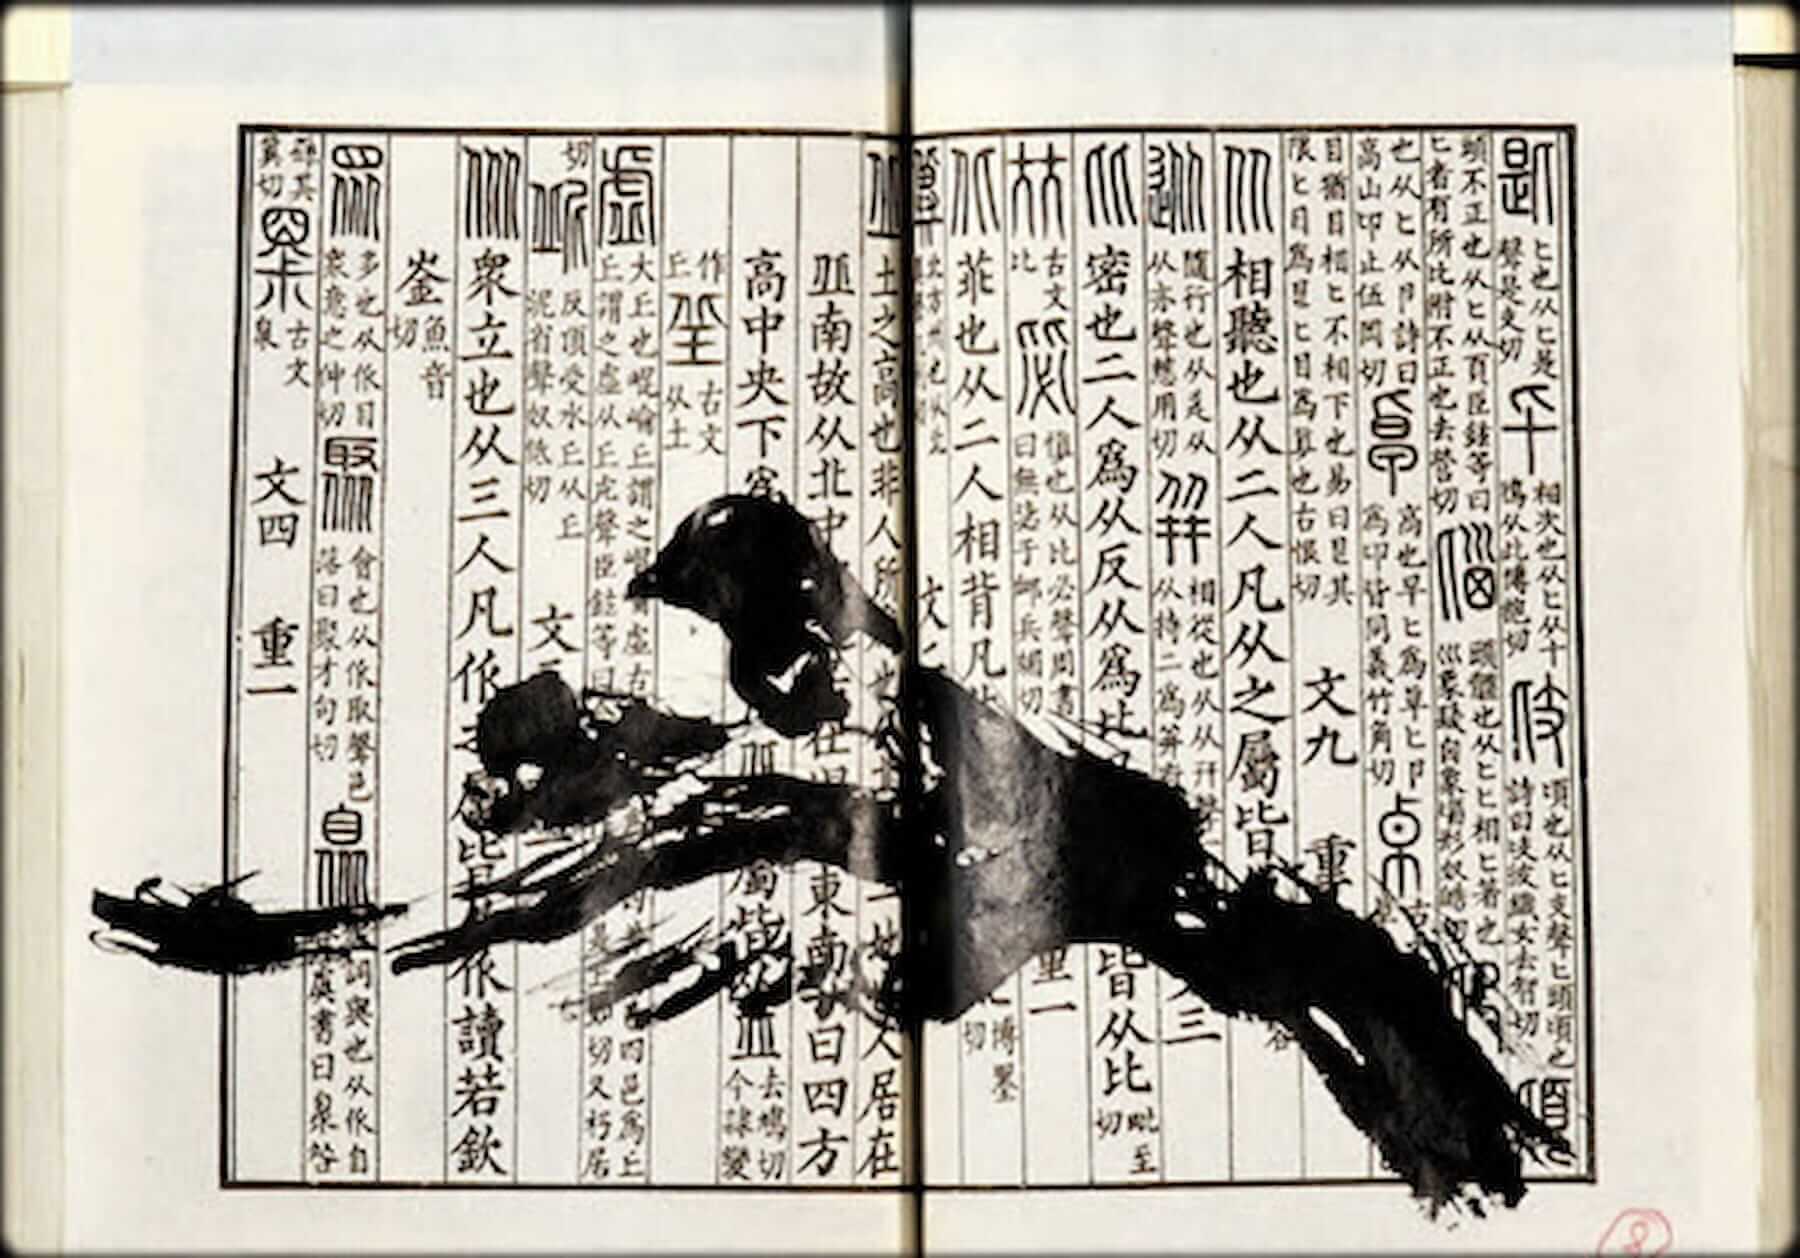 匙 匕也从匕是聲是支切 𠤏 相次也从匕从十鴇从此博抱切 𠤗 頃也从匕支聲匕頭頃也詩曰𠤗彼織女去智切 頃
頭不正也从匕从頁臣鉉等曰匕者有所比附不正也去營切 𡿺 頭髓也从匕匕相匕著也巛象髮囟象𡿺形奴皓切
也从匕从卪詩曰高山卬止伍岡切 卓 高也早匕爲𠦝匕卪爲卬皆同義竹角切 古
目猶目相匕不相下也易曰皀其限匕目爲皀匕目爲真也古恨切 文九 重
从 相聽也从二人凡从之屬皆
從 隨行也从辵从从亦聲慈用切 并 相從也从从幵聲从持二爲并 三
比 密也二人爲从反从爲比 皆从比 毗至切
古文比 毖 愼也从比必聲周書曰無毖于卹兵媚切 重一
北 菲也从二人相背凡北 博墨切
冀 文二
丘 土之高也非人所 也 一地 人居在
丘南故从北中 在 東南 曰四方
高中央下爲 丘 屬皆从丘 去鳩切今隸變
作丘 古文从土
虛 大丘也崐崘丘謂之崐 虛古 丘謂之虛从丘虍聲臣鉉等曰 四邑爲丘 切又朽居
切 屔 反頂受水丘从丘泥省聲奴低切 文三
㐺 衆立也从三人凡㐺 屬皆 㐺讀若欽
魚音崟切
衆 多也从㐺目衆意之仲切 聚 會也从㐺取聲邑落曰聚才句切 臮 詞與也从㐺自虞書曰臮咎
其冀切 古文臮 文四 重一